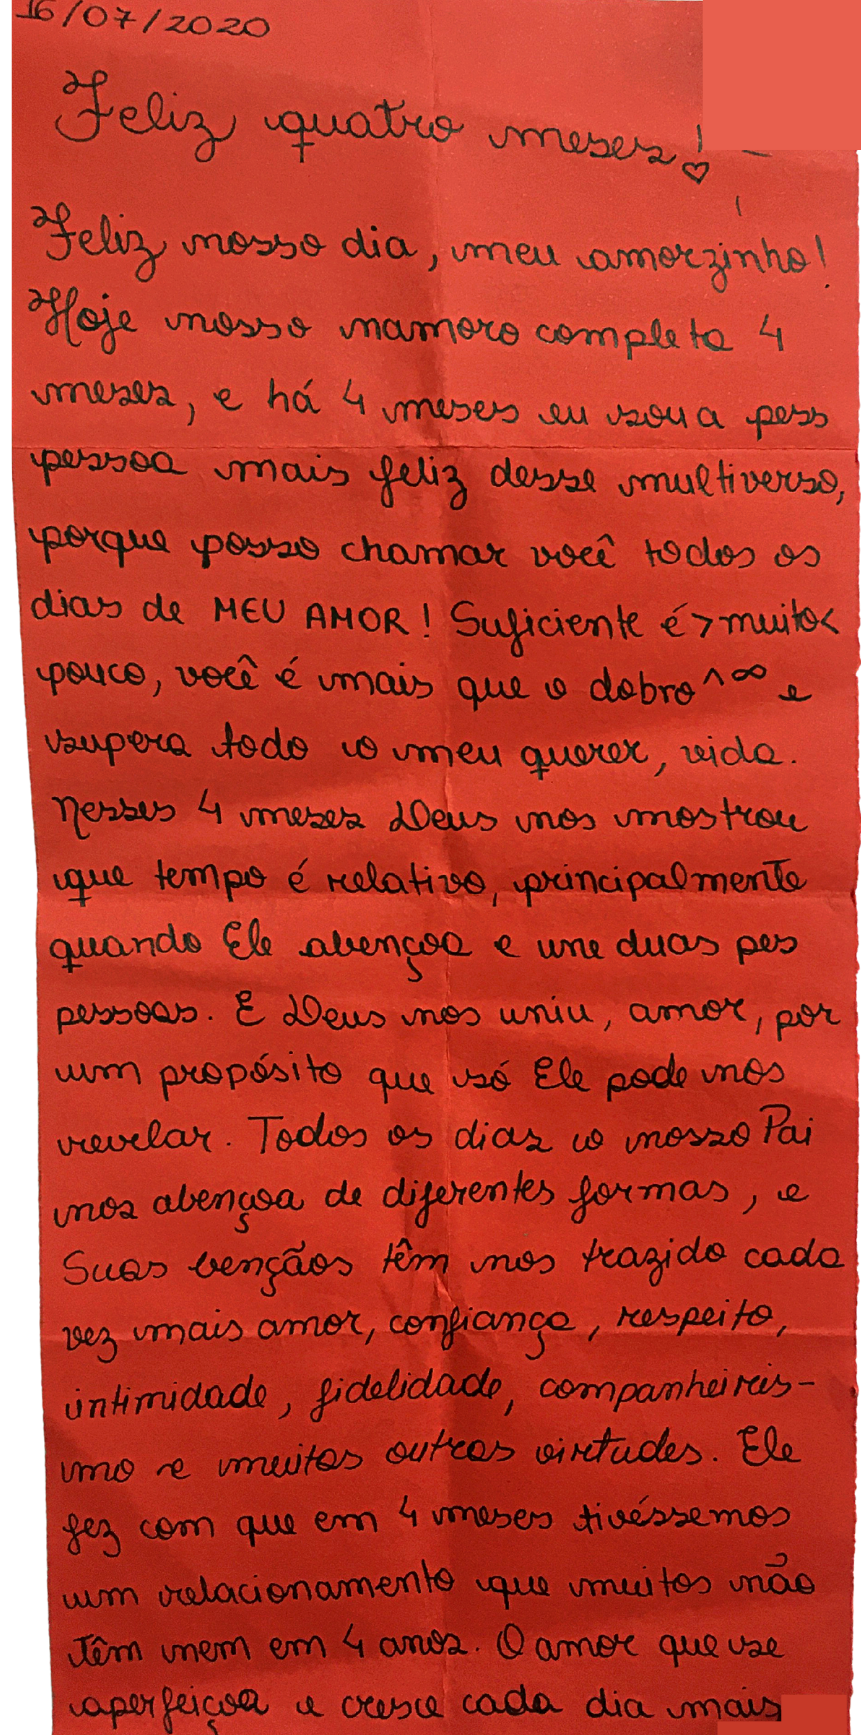 16/07/2020
Feliz quatro meses!♡
Feliz nosso dia, meu amorzinho!
Hoje nosso namoro completa 4
meses, e há 4 meses eu sou a pess
pessoa mais feliz desse multiverso,
porque posso chamar você todos os
dias de MEU AMOR! Suficiente é >muito<
pouco, você é mais que o dobro^∞ e
supera todo o meu querer, vida.
Nesses 4 meses Deus nos mostrou
que tempo é relativo, principalmente
quando Ele abençoa e une duas pes
pessoas. E Deus nos uniu, amor, por
um propósito que só Ele pode nos
revelar. Todos os dias o nosso Pai
nos abençoa de diferentes formas, e
Suas bençãos têm nos trazido cada
vez mais amor, confiança, respeito,
intimidade, fidelidade, companheiris-
mo e muitas outras virtudes. Ele
fez com que em 4 meses tivéssemos
um relacionamento que muitos não
têm nem em 4 anos. O amor que se
aperfeiçoa e cresce cada dia mais